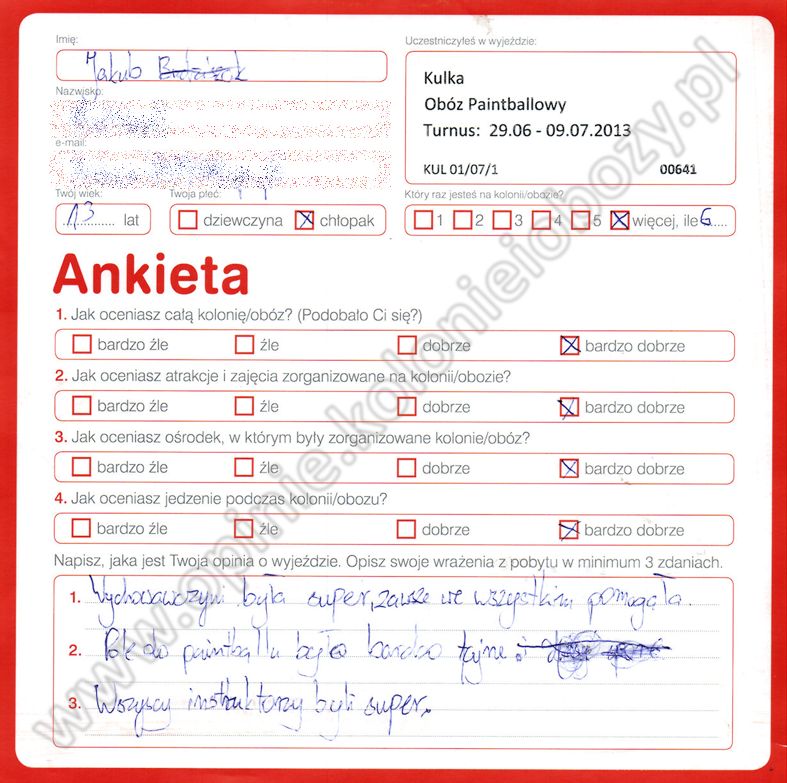 Imię:
Jakub
Nazwisko:
e-mail:
Twój wiek:
13 lat
Twoja płeć:
dziewczyna chłopak
Uczestniczyłeś w wyjeździe:
Kulka
Obóz Paintballowy
Turnus: 29.06 - 09.07.2013
KUL 01/07/1 00641
Który raz jesteś na kolonii/obozie?
1 2 3 4 5 więcej, ile 6
Ankieta
1. Jak oceniasz całą kolonię/obóz? (Podobało Ci się?)
bardzo źle źle dobrze bardzo dobrze
2. Jak oceniasz atrakcje i zajęcia zorganizowane na kolonii/obozie?
bardzo źle źle dobrze bardzo dobrze
3. Jak oceniasz ośrodek, w którym były zorganizowane kolonie/obóz?
bardzo źle źle dobrze bardzo dobrze
4. Jak oceniasz jedzenie podczas kolonii/obozu?
bardzo źle źle dobrze bardzo dobrze
Napisz, jaka jest Twoja opinia o wyjeździe. Opisz swoje wrażenia z pobytu w minimum 3 zdaniach.
1. Wychowawczyni była super, zawsze we wszystkim pomagała.
2. Pole do paintballu było bardzo fajne
3. Wszyscy instruktorzy byli super.
www.opinie.kolonieiobozy.pl